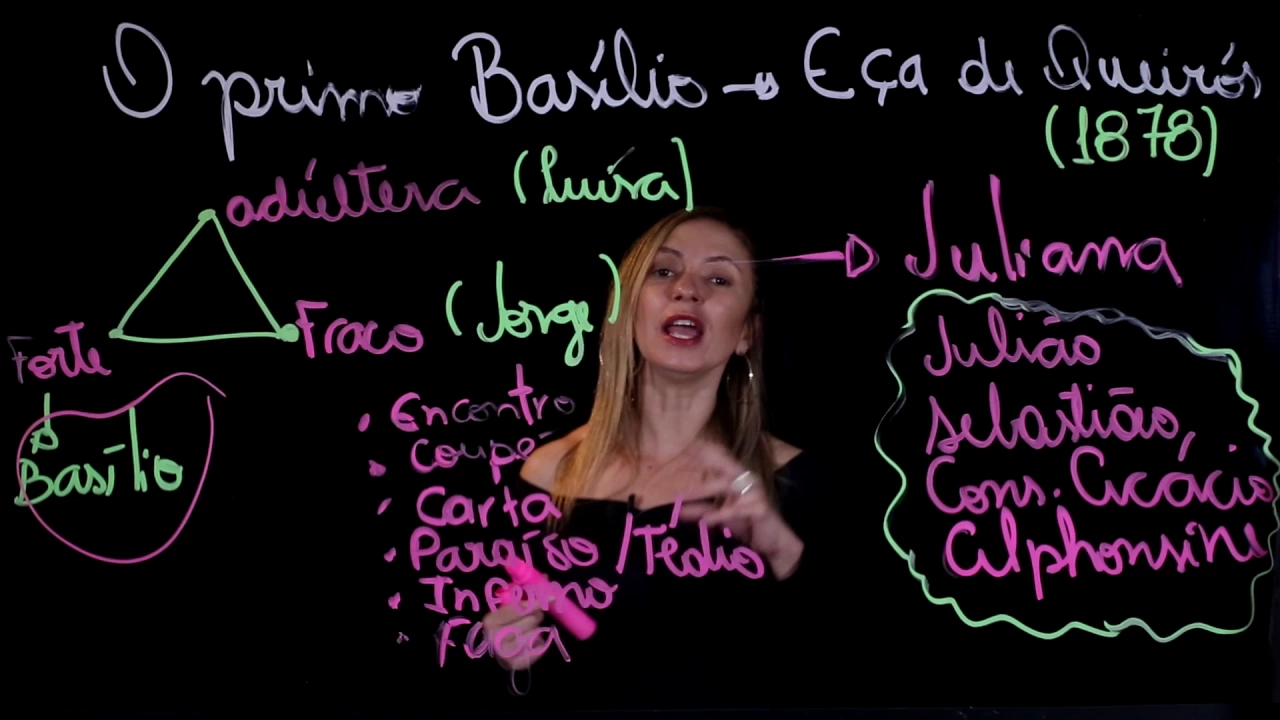 O primo Basílio → Eça de Queirós
(1878)
adúltera (Luísa)
Juliana
Fraco (Jorge)
Forte
Basílio
• Encontro
• coupé
• Carta
• Paraíso / Tédio
• Inferno
• Fuga
Julião
Sebastião,
Cons. Acácio
Alphonsine